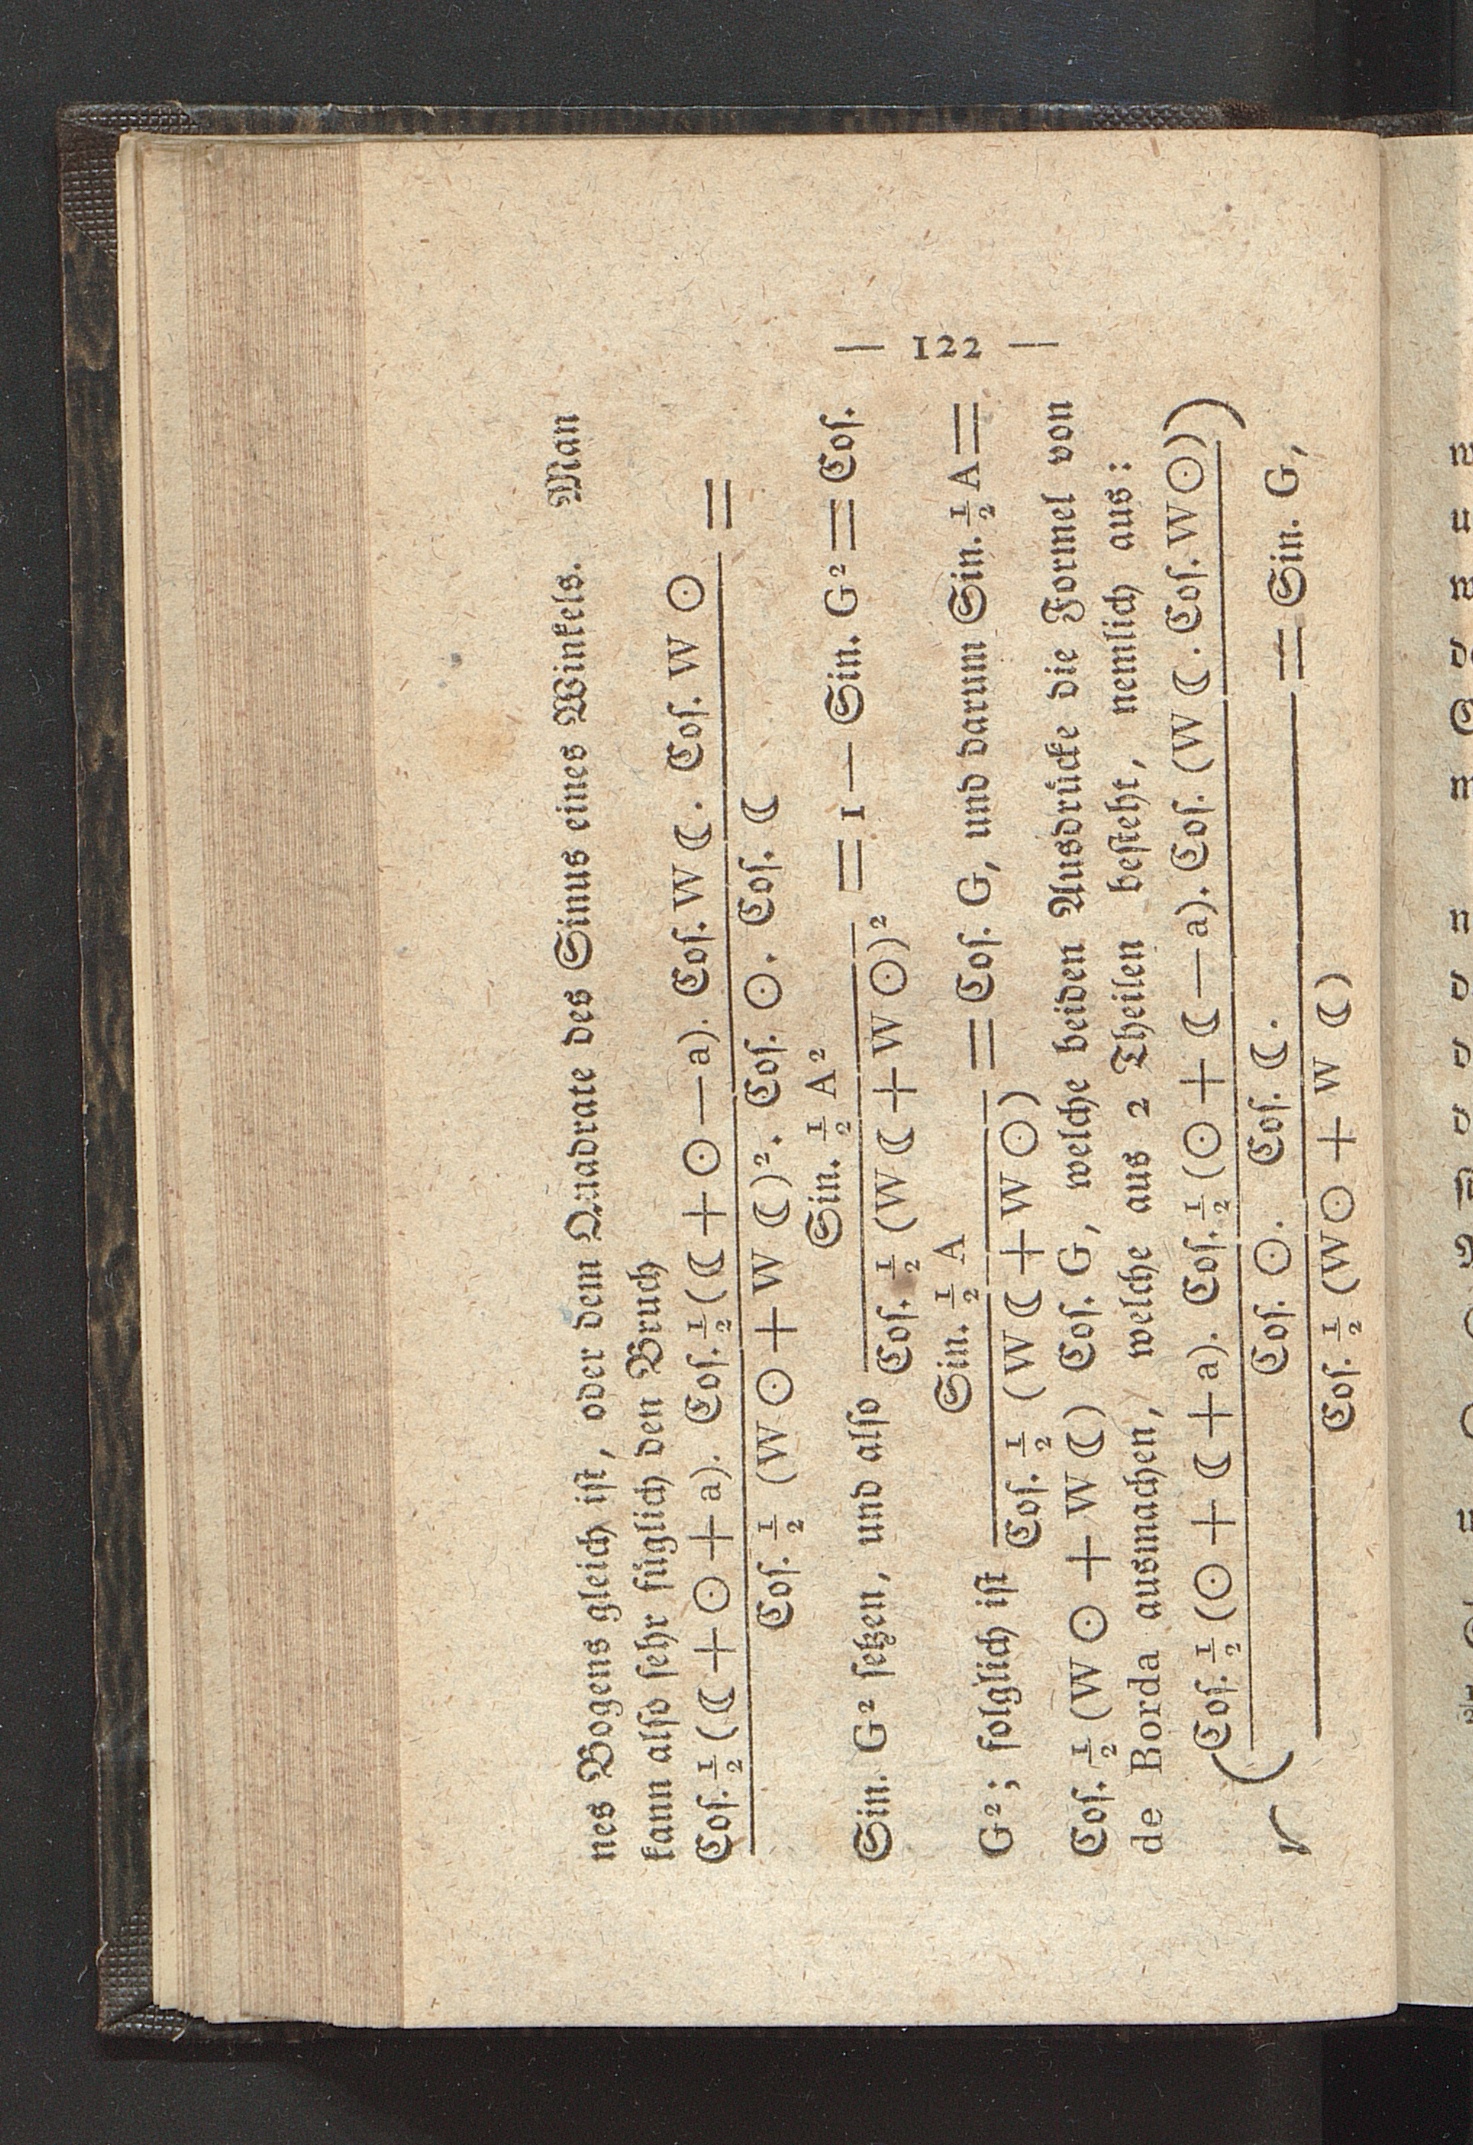 — 122 —
nes Bogens gleich iſt, oder dem Quadrate des Sinus eines Winkels. Man
kann alſo ſehr füglich den Bruch
Coſ. ½ (☾ + ☉ + a). Coſ. ½ (☾ + ☉ — a). Coſ. W ☾. Coſ. W ☉ =
Coſ. ½ (W ☉ + W ☾)². Coſ. ☉. Coſ. ☾
Sin. ½ A²
Sin. G² ſetzen, und alſo = 1 — Sin. G² = Coſ.
Coſ. ½ (W ☾ + W ☉)²
Sin. ½ A
G²; folglich iſt = Coſ. G, und darum Sin. ½ A =
Coſ. ½ (W ☾ + W ☉)
Coſ. ½ (W ☉ + W ☾) Coſ. G, welche beiden Ausdrücke die Formel von
de Borda ausmachen, welche aus 2 Theilen beſteht, nemlich aus:
√ (Coſ. ½ (☉ + ☾ + a). Coſ. ½ (☉ + ☾ — a). Coſ. (W ☾. Coſ. W ☉))
Coſ. ☉. Coſ. ☾.
= Sin. G,
Coſ. ½ (W ☉ + W ☾)